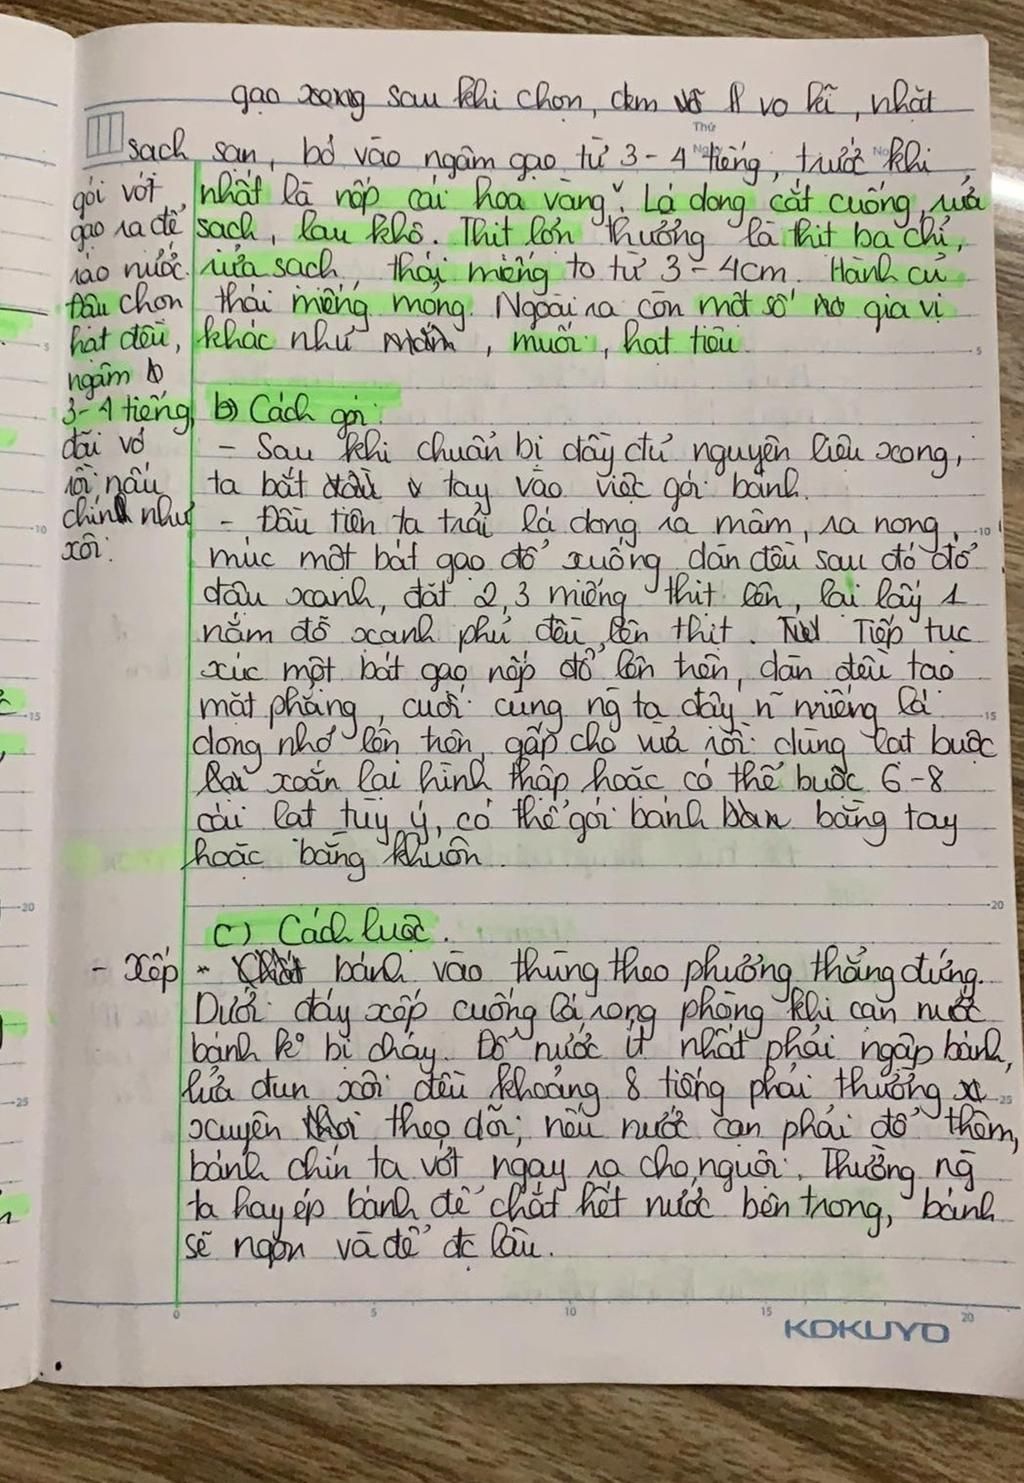 gạo xong sau khi chọn, đem vo kĩ, nhặt
sạch sạn, bỏ vào ngâm gạo từ 3-4 tiếng, trước khi
gói vớt
gạo ra để
ráo nước.
Đậu chọn
hạt đều,
ngâm
3-4 tiếng,
đãi vỏ
rồi nấu
chín như
xôi.
nhất là nếp cái hoa vàng. Lá dong cắt cuống, rửa
sạch, lau khô. Thịt lợn thường là thịt ba chỉ,
rửa sạch, thái miếng to từ 3-4cm. Hành củ
thái miếng mỏng. Ngoài ra còn một số gia vị
khác như mắm, muối, hạt tiêu.
b) Cách gói:
- Sau khi chuẩn bị đầy đủ nguyên liệu xong,
ta bắt tay vào việc gói bánh.
- Đầu tiên ta trải lá dong ra mâm, ra nong,
múc một bát gạo đổ xuống dàn đều sau đó đổ
đậu xanh, đặt 2,3 miếng thịt lên, lại lấy 1
nắm đỗ xanh phủ đều lên thịt. Tiếp tục
xúc một bát gạo nếp đổ lên trên, dàn đều tạo
mặt phẳng, cuối cùng ng ta đậy n miếng lá
dong nhỏ lên trên, gấp cho vừa rồi dùng lạt buộc
lại xoắn lại hình thập hoặc có thể buộc 6-8
cái lạt tùy ý, có thể gói bánh bằng tay
hoặc bằng khuôn.
c) Cách luộc.
- Xếp bánh vào thùng theo phương thẳng đứng.
Dưới đáy xếp cuống lá, rong phòng khi cạn nước
bánh k° bị cháy. Đổ nước ít nhất phải ngập bánh,
lửa đun sôi đều khoảng 8 tiếng phải thường
xuyên theo dõi, nếu nước cạn phải đổ thêm,
bánh chín ta vớt ngay ra cho nguội. Thường ng
ta hay ép bánh để chắt hết nước bên trong, bánh
sẽ ngon và để đc lâu.
Thứ
5
10
15
20
25
0 5 10 15 20
KOKUYO